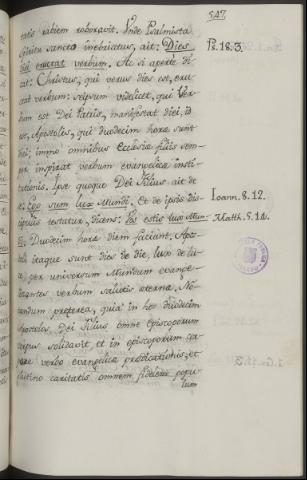 547.
tatis rabiem roboravit. Unde Psalmista
Spiritu sancto inebriatus, ait: Dies
diei eructat verbum. Ac si aperte di-
cat: Christus, qui verus dies est, eruc-
tat verbum: seipsum videlicet, qui Ver-
bum est Dei Patris, manifestat diei, id
est, Apostoles, qui duodecim horæ sunt
diei; immo omnibus Ecclesiæ filiis sem-
per inspirat verbum evangelicæ insti-
tutionis. Ipse quoque Dei Filius ait de
se: Ego sum lux Mundi. Et de ipsis dis-
cipulis testatur, dicens: Vos estis lux Mun-
di. Duodecim horæ diem faciunt. Apo-
stoli itaque sunt dies de die, lux de lu-
ce, per universum Mundum evange-
lizantes verbum salutis æternæ. No-
tandum præterea, quia in hoc duodecim
Apostoles Dei Filius omne Episcoporum
corpus solidavit, et in episcoporum cor-
pore verbo evangelicæ prædicationis, et
glutino caritatis omnem fidelem popu-
lum
Ps. 18. 3.
Ioann. 8. 12.
Matth. 5. 14.